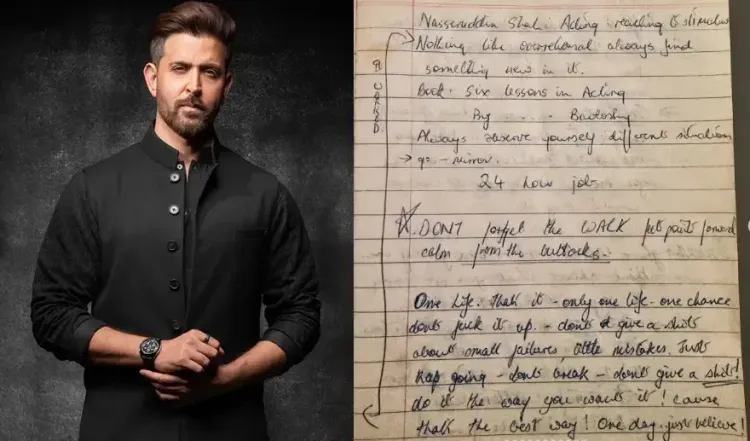 Nasseruddin Shah: Acting reacting to stimulus
Nothing like overrehearsal always find
something new in it.
Book: Six lessons in Acting
By
Always observe yourself different situations
→ go - mirror.
24 hour job
DON'T forget the WALK
calm from the buttocks.
One Life. that it - only one life. one chance
dont fuck it up. - dont give a shit
about small failures, little mistakes. Just
Keep going - dont break - dont give a shit!
do it the way you want it! cause
that the best way! One day. just believe!